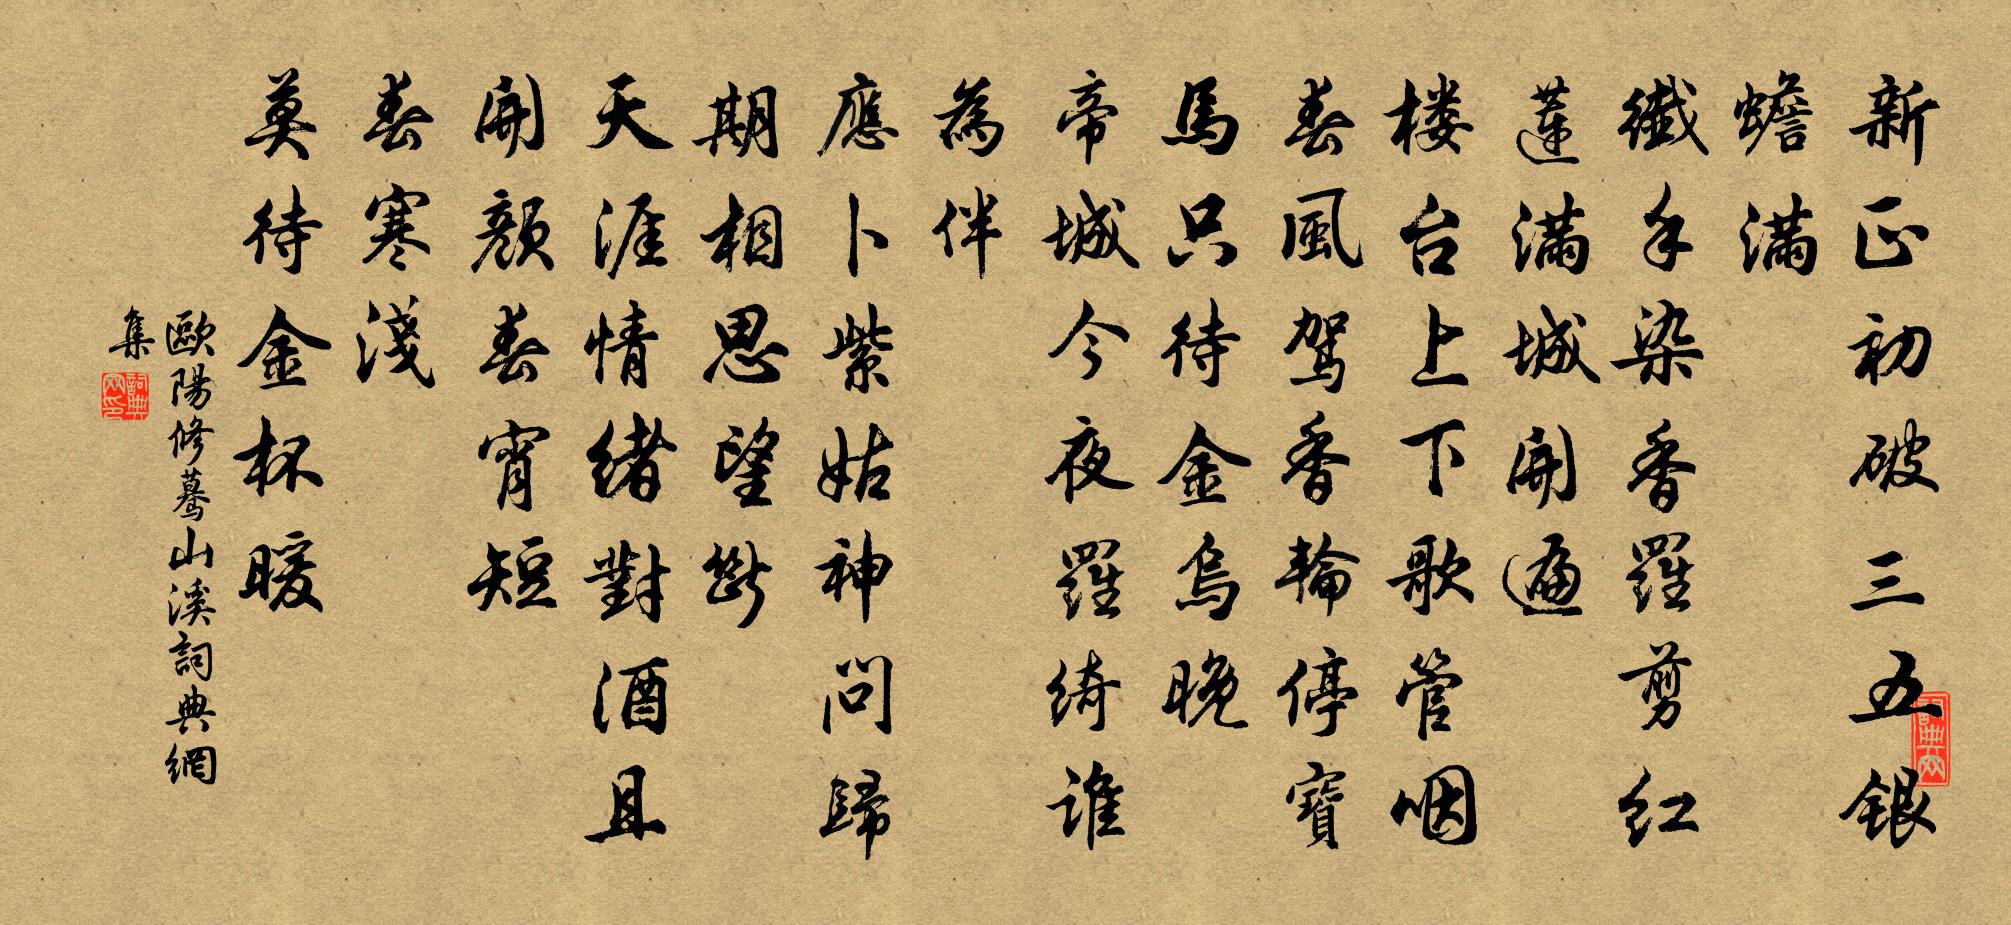 新正初破三五銀
蟾滿
纖手染香羅剪紅
蓮滿城開遍
楼台上下歌管咽
春風駕香輪停寶
馬只待金烏晚
帝城今夜羅綺谁
為伴
應卜紫姑神問歸
期相思望斷
天涯情緒對酒且
開顏春宵短
春寒淺
莫待金杯暖
歐陽修驀山溪詞典網
集
詞典
网印
詞典网